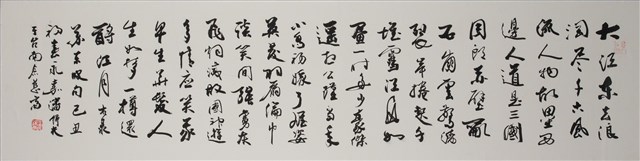 大江东去浪
淘尽千古风
流人物故垒西
边人道是三国
周郎赤壁乱
石崩云惊涛
裂岸捲起千
堆雪江山如
画一时多少豪杰
遥想公瑾当年
小乔初嫁了雄姿
英发羽扇纶巾
谈笑间强虏灰
飞烟灭故国神游
多情应笑我
早生华发人
生如梦一樽还
酹江月